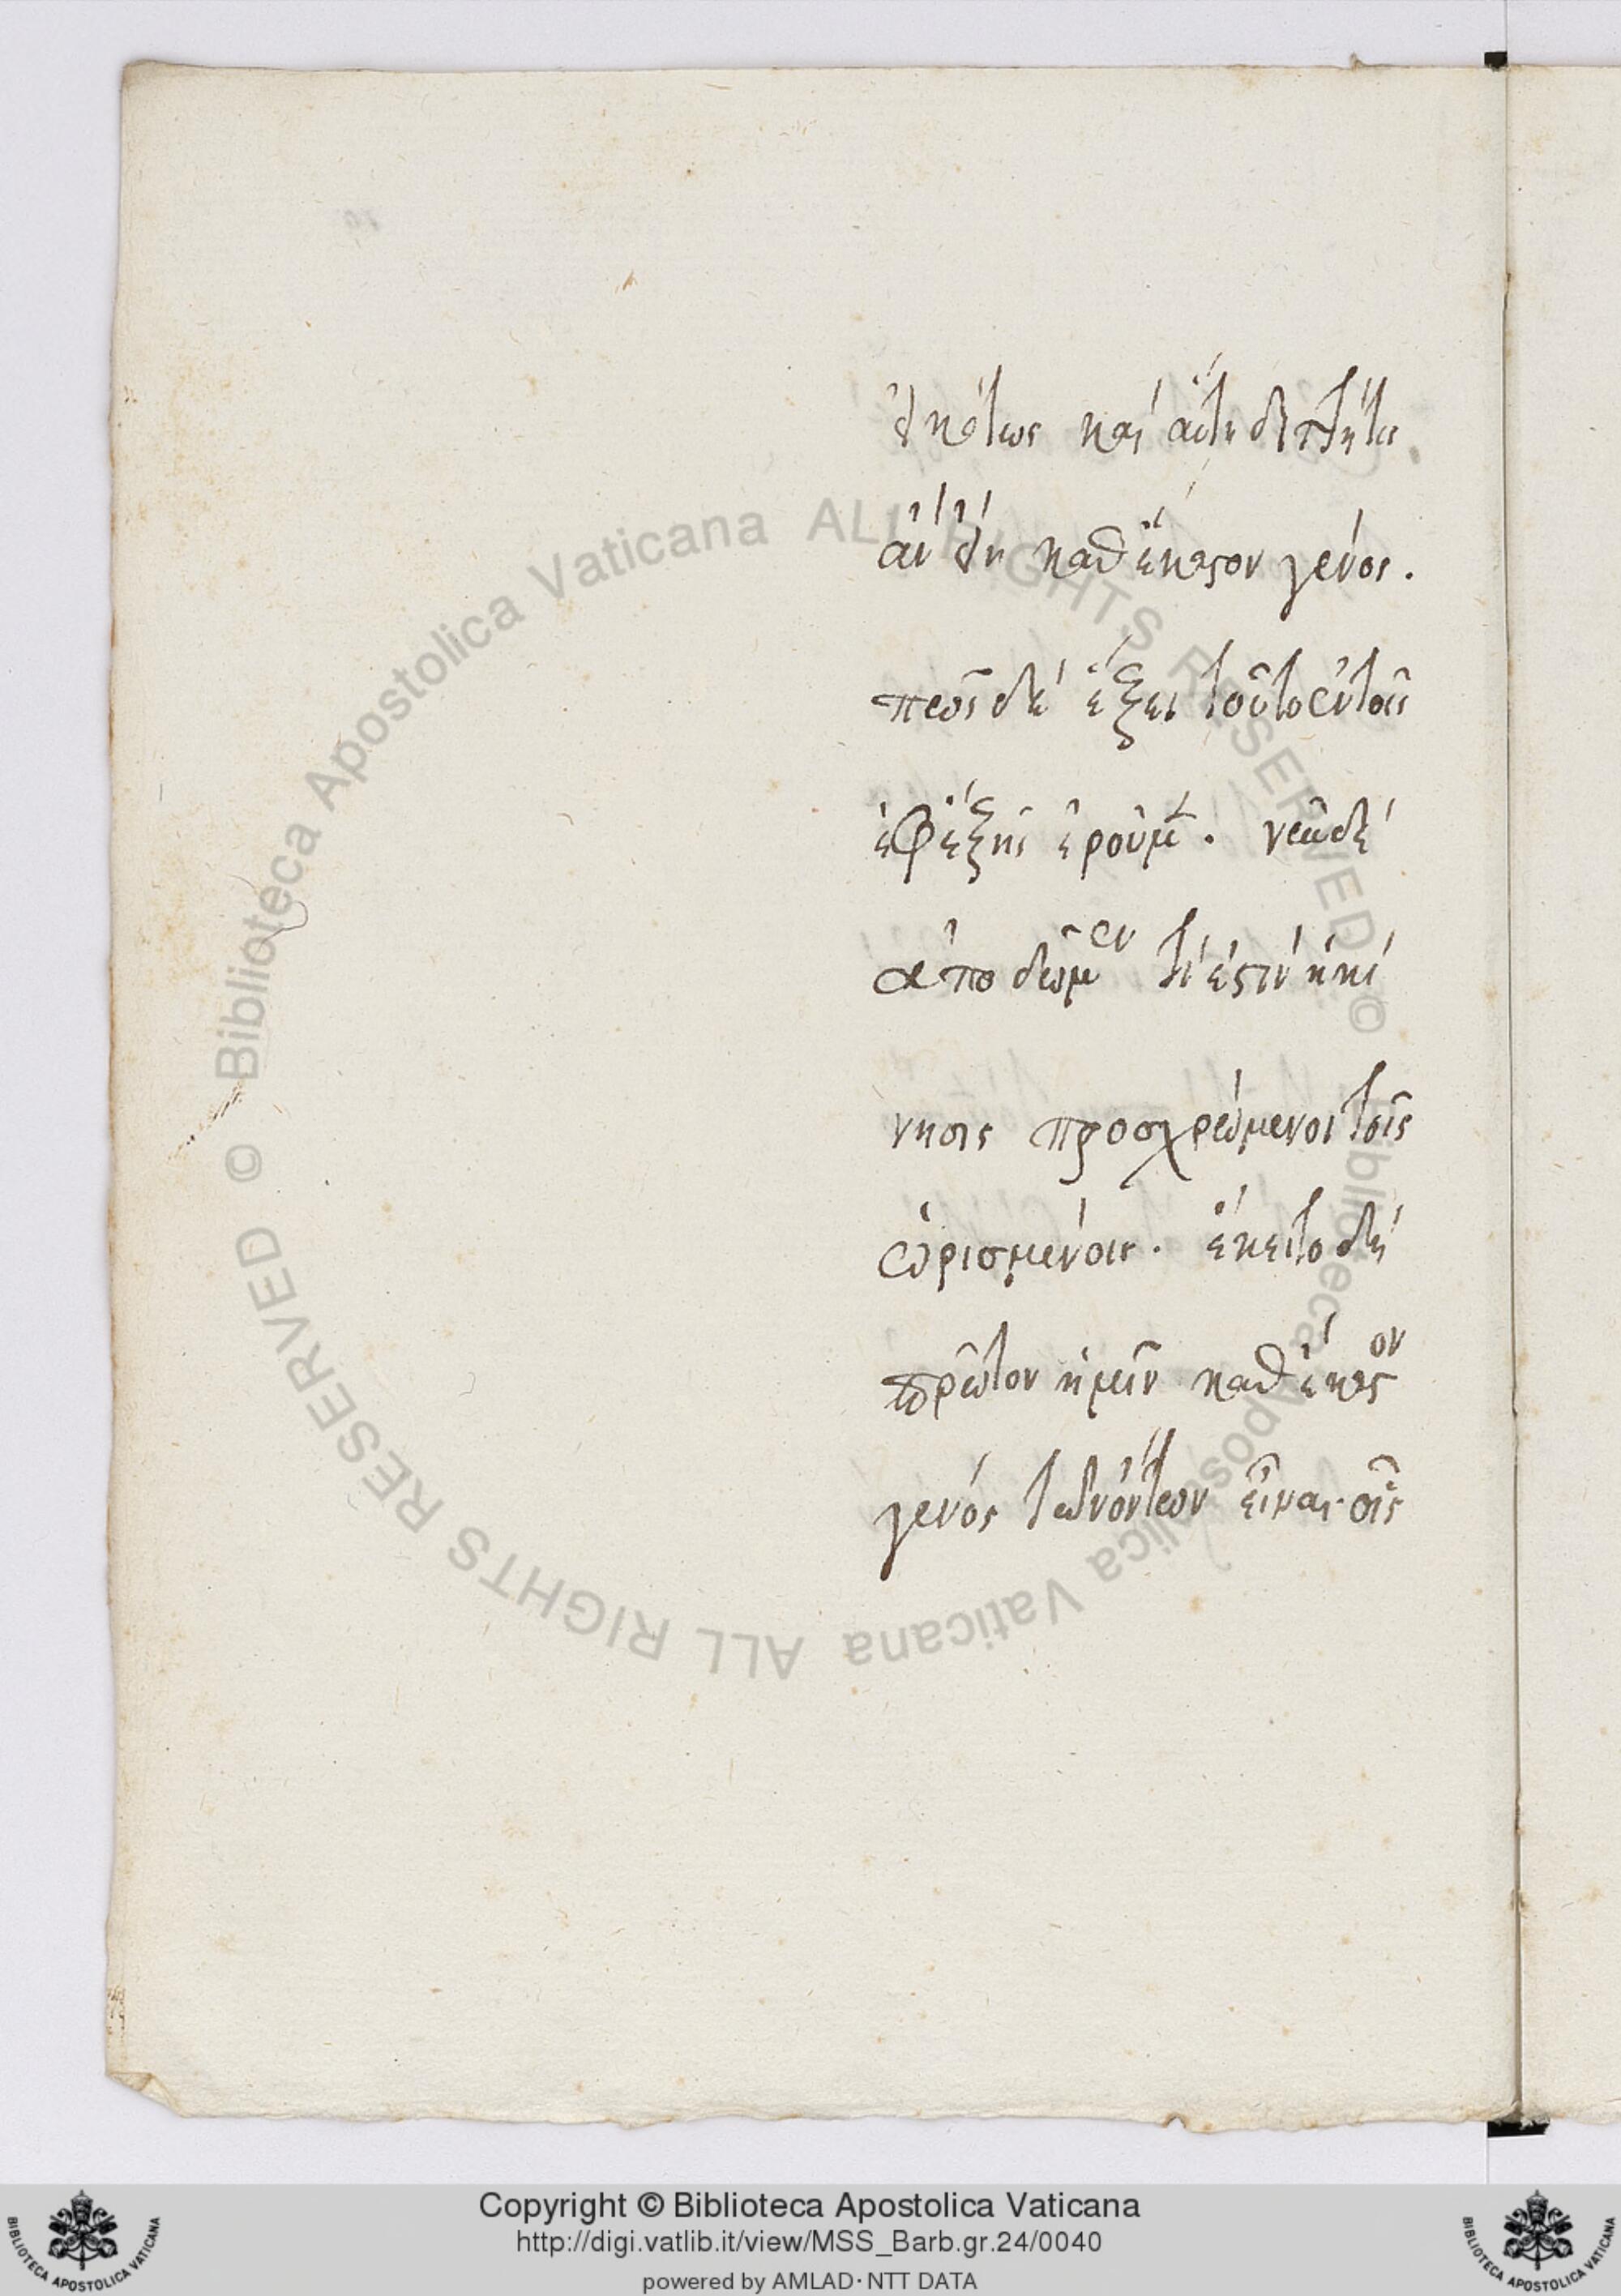 εἰκότως καὶ αὕτη διττή τις
ἂν εἴη καθ' ἕκαστον γένος.
πῶς δὲ ἕξει τοῦτο ἐν τοῖς
ἐφεξῆς ἐροῦμεν. νῦν δὲ
ἀποδῶμεν τί ἐστιν ἡ κί
νησις προσχρώμενοι τοῖς
ὡρισμένοις. ἔκειτο δὲ
πρῶτον ἡμῖν καθ' ἕκαστον
γένος τῶν ὄντων εἶναι οἷς
© Biblioteca Apostolica Vaticana ALL RIGHTS RESERVED © Biblioteca Apostolica Vaticana ALL RIGHTS RESERVED
Copyright © Biblioteca Apostolica Vaticana
http://digi.vatlib.it/view/MSS_Barb.gr.24/0040
powered by AMLAD·NTT DATA
BIBLIOTECA APOSTOLICA VATICANA
BIBLIOTECA APOSTOLICA VATICANA